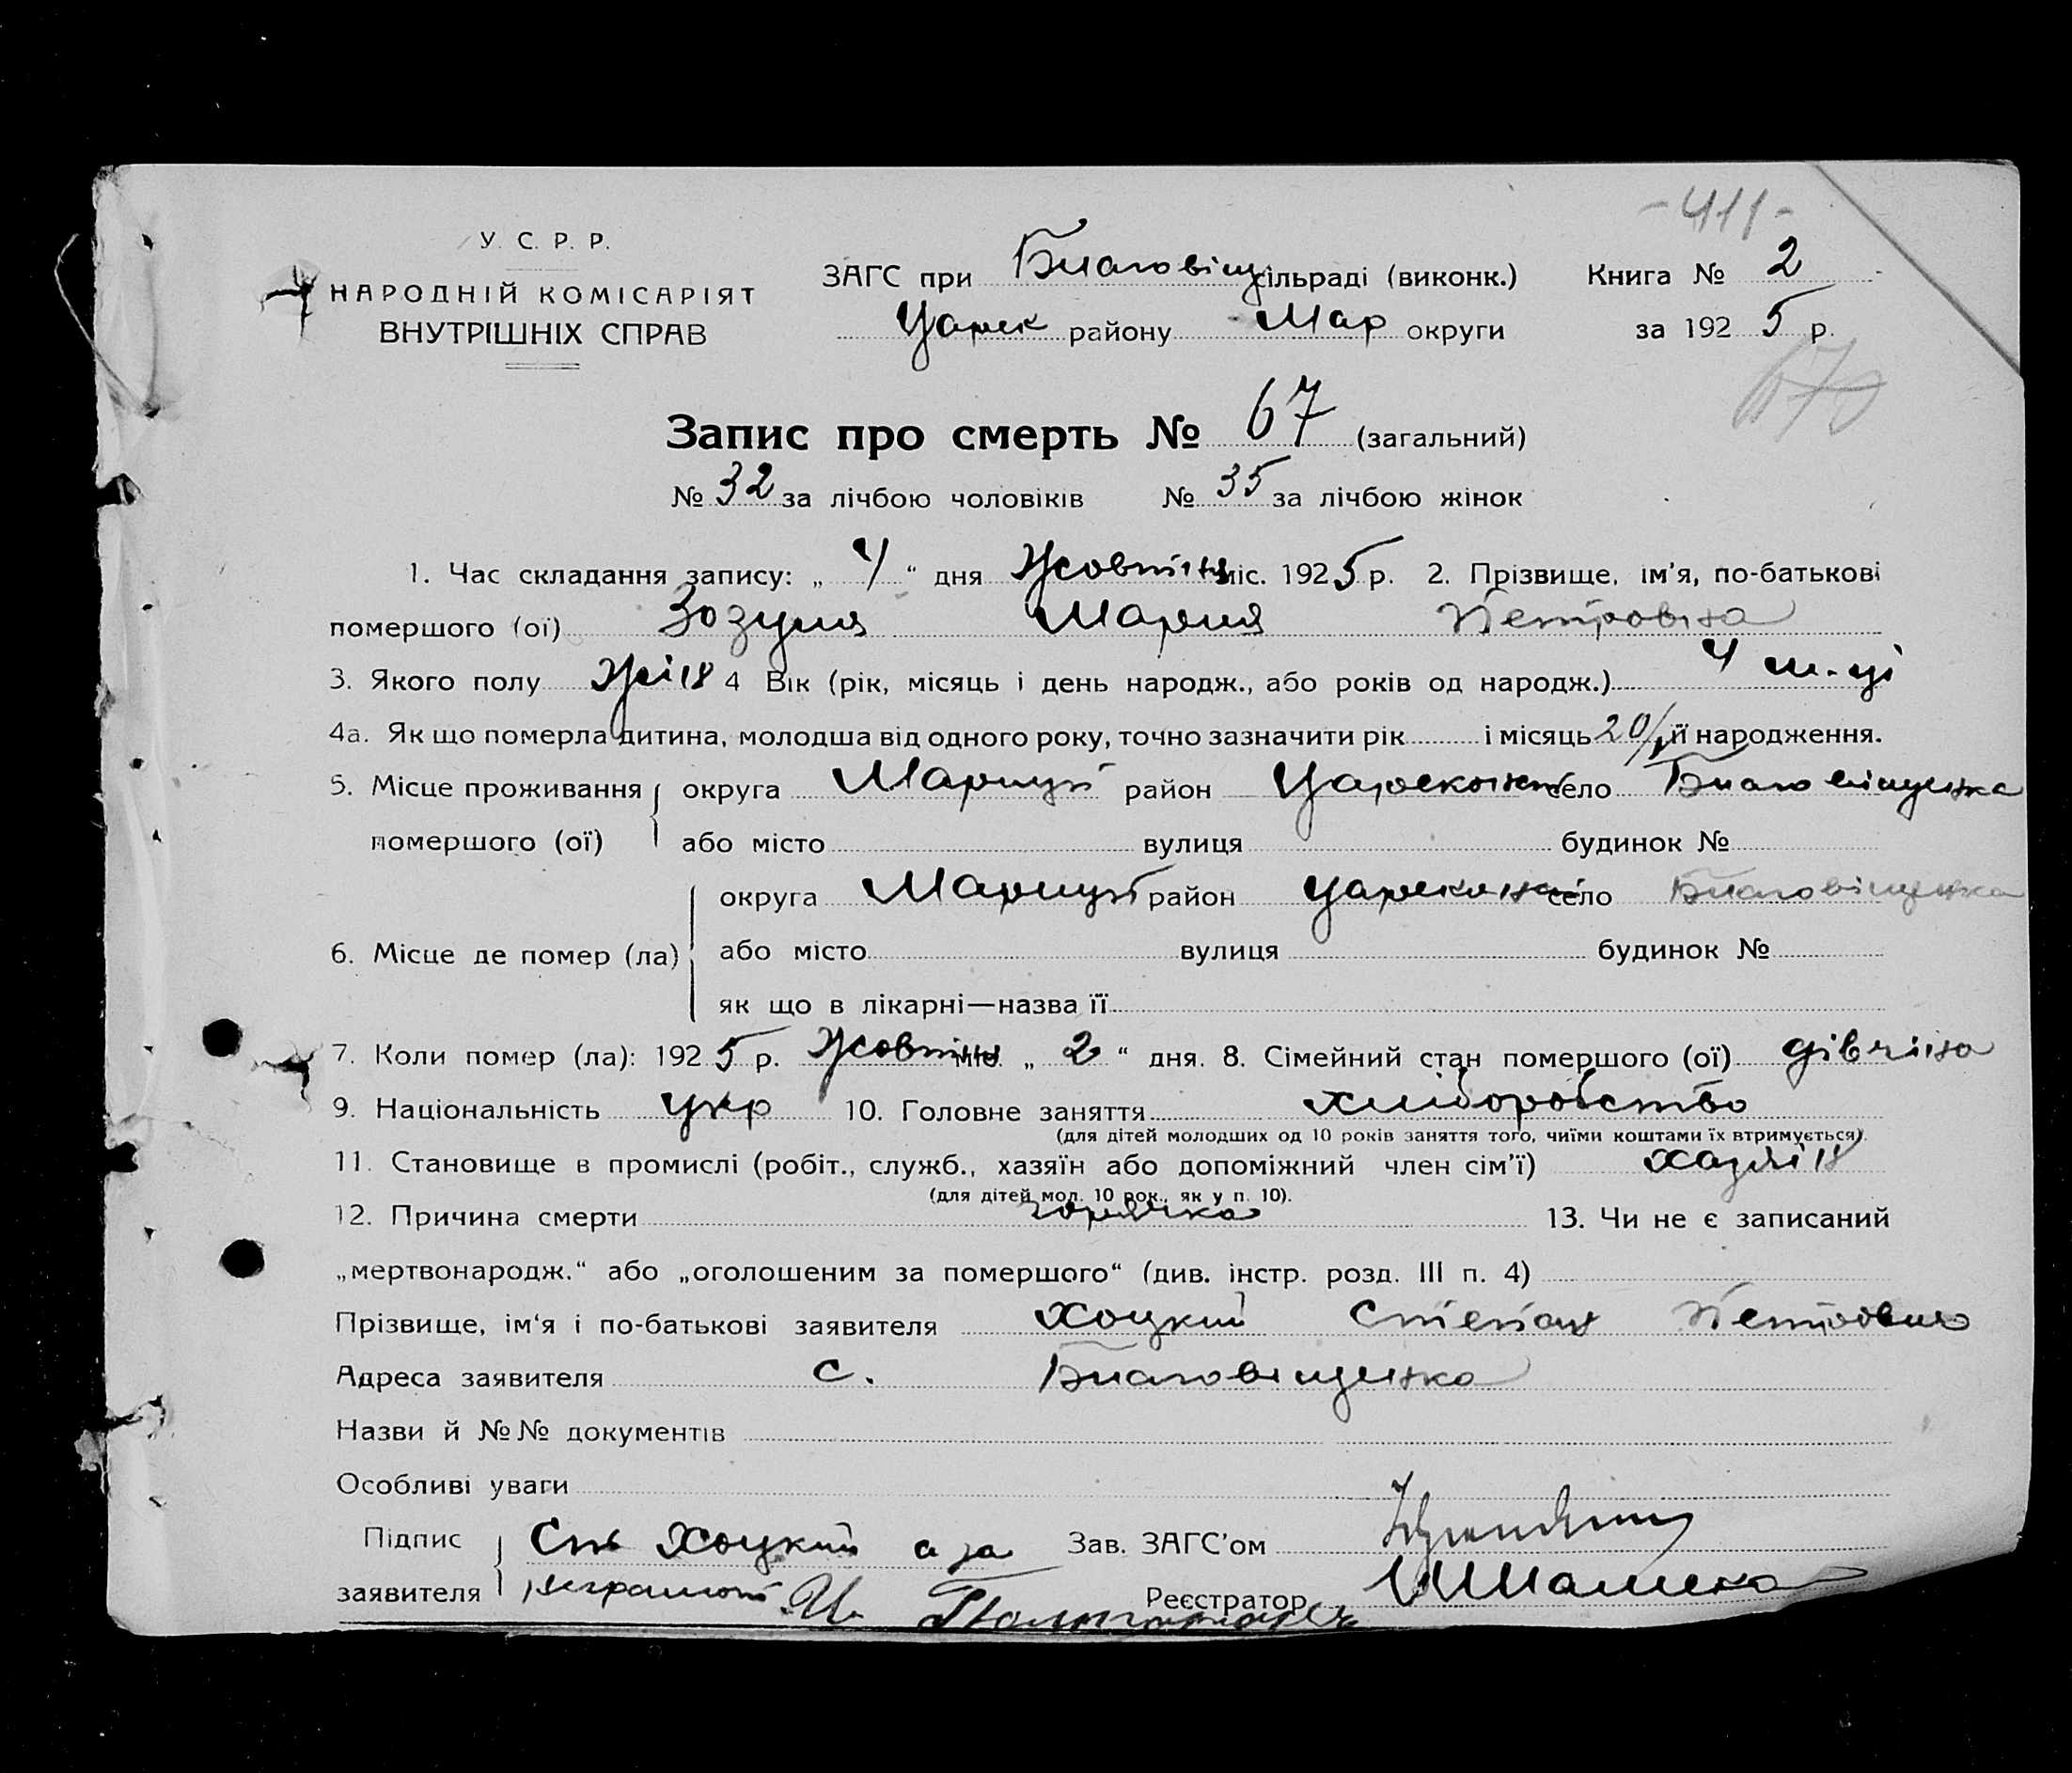 -411-
У. С. Р. Р.
НАРОДНІЙ КОМІСАРІЯТ
ВНУТРІШНІХ СПРАВ
ЗАГС при Благовіщ сільраді (виконк.) Книга № 2
Царек району Мар округи за 1925 р.
670
Запис про смерть № 67 (загальний)
№ 32 за лічбою чоловіків № 35 за лічбою жінок
1. Час складання запису: „ 4 “ дня Жовтня міс. 1925 р. 2. Прізвище, ім’я, по-батькові
помершого (ої) Зозуля Мария Петровна
3. Якого полу Жін 4 Вік (рік, місяць і день народж., або років од народж.) 4 м-ці
4а. Як що померла дитина, молодша від одного року, точно зазначити рік і місяць 20/ її народження.
5. Місце проживання помершого (ої) округа Мариуп район Царекон село Благовіщенка
або місто вулиця будинок №
6. Місце де помер (ла) округа Мариуп район Царекон село Благовіщенка
або місто вулиця будинок №
як що в лікарні—назва її
7. Коли помер (ла): 1925 р. Жовтня міс. „ 2 “ дня. 8. Сімейний стан помершого (ої) дівчина
9. Національність укр 10. Головне заняття хліборобство
(для дітей молодших од 10 років заняття того, чиїми коштами їх втримується).
11. Становище в промислі (робіт., служб., хазяїн або допоміжний член сім’ї) хазяін
(для дітей мол. 10 рок., як у п. 10).
12. Причина смерти горячка 13. Чи не є записаний
„мертвонародж.“ або „оголошеним за помершого“ (див. інстр. розд. III п. 4)
Прізвище, ім‘я і по-батькові заявителя Хоцкий Степан Петрович
Адреса заявителя с. Благовіщенка
Назви й №№ документів
Особливі уваги
Підпис заявителя Ст Хоцкий а за Зав. ЗАГС’ом
неграмот И. Реєстратор